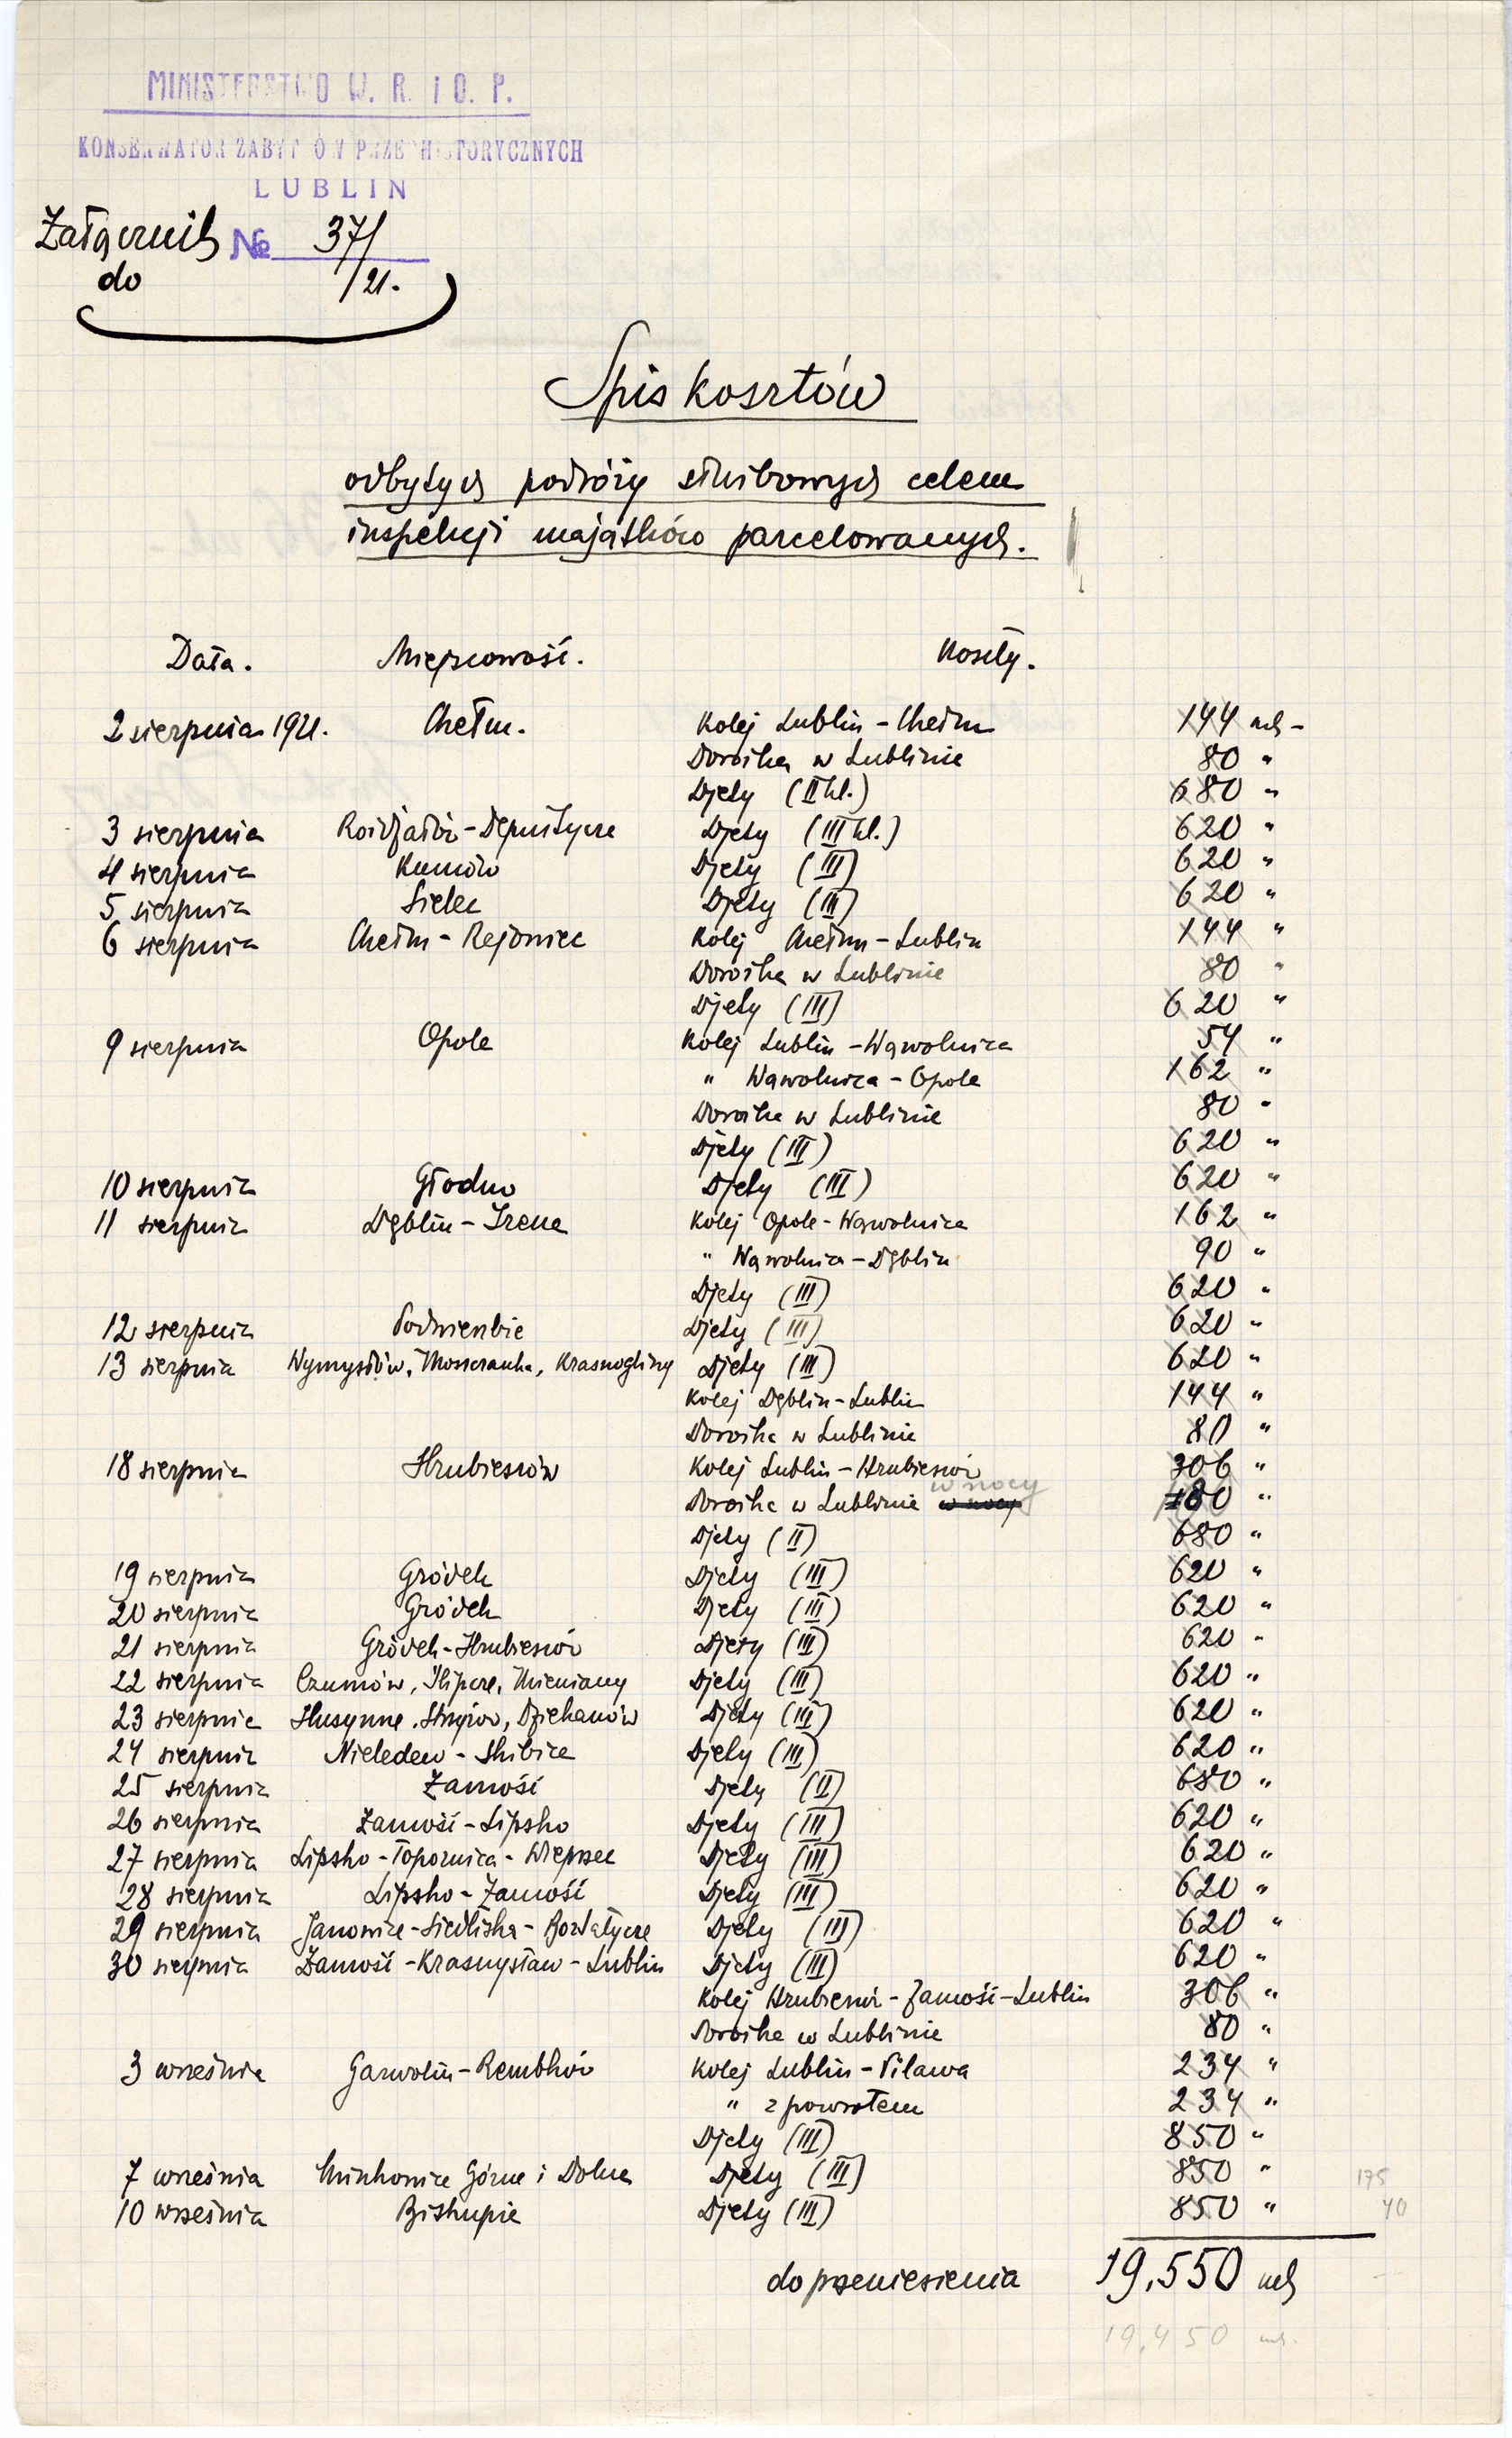 MINISTERSTWO W. R. i O. P.
KONSERWATOR ZABYTKÓW PRZEDHISTORYCZNYCH
LUBLIN
Załącznik № 37/
do /21.
Spis kosztów
odbytych podróży służbowych celem
inspekcji majątków parcelowanych.
Data. Miejscowość. Koszty.
2 sierpnia 1921. Chełm. Kolej Lublin - Chełm 144 mk -
Dorożka w Lublinie 80 "
Djety (II kl.) 680 "
3 sierpnia Rożdżałów - Depułtycze Djety (III kl.) 620 "
4 sierpnia Kumów Djety (III) 620 "
5 sierpnia Sielec Djety (III) 620 "
6 sierpnia Chełm - Rejowiec Kolej Chełm - Lublin 144 "
Dorożka w Lublinie 80 "
Djety (III) 620 "
9 sierpnia Opole Kolej Lublin - Wąwolnica 54 "
" Wąwolnica - Opole 162 "
Dorożka w Lublinie 80 "
Djety (III) 620 "
10 sierpnia Głodno Djety (III) 620 "
11 sierpnia Dęblin - Irena Kolej Opole - Wąwolnica 162 "
" Wąwolnica - Dęblin 90 "
Djety (III) 620 "
12 sierpnia Podwierzbie Djety (III) 620 "
13 sierpnia Wymysłów, Moszczanka, Krasnogliny Djety (III) 620 "
Kolej Dęblin - Lublin 144 "
Dorożka w Lublinie 80 "
18 sierpnia Hrubieszów Kolej Lublin - Hrubieszów 306 "
w nocy
Dorożka w Lublinie w nocy 180 "
Djety (II) 680 "
19 sierpnia Gródek Djety (III) 620 "
20 sierpnia Gródek Djety (III) 620 "
21 sierpnia Gródek - Hrubieszów Djety (III) 620 "
22 sierpnia Czumów, Ślipcze, Mieniany Djety (III) 620 "
23 sierpnia Husynne, Stryżów, Dziekanów Djety (III) 620 "
24 sierpnia Nieledew - Skibice Djety (III) 620 "
25 sierpnia Zamość Djety (II) 680 "
26 sierpnia Zamość - Lipsko Djety (III) 620 "
27 sierpnia Lipsko - Topornica - Wieprzec Djety (III) 620 "
28 sierpnia Lipsko - Zamość Djety (III) 620 "
29 sierpnia Janowice - Siedliska - Bortatycze Djety (III) 620 "
30 sierpnia Zamość - Krasnystaw - Lublin Djety (III) 620 "
Kolej Hrubieszów - Zamość - Lublin 306 "
Dorożka w Lublinie 80 "
3 września Garwolin - Rembków Kolej Lublin - Pilawa 234 "
" z powrotem 234 "
Djety (III) 850 "
7 września Minkowice Górne i Dolne Djety (III) 850 " 175
10 września Biskupie Djety (III) 850 " 40
do przeniesienia 19,550 mk
19,450 mk.